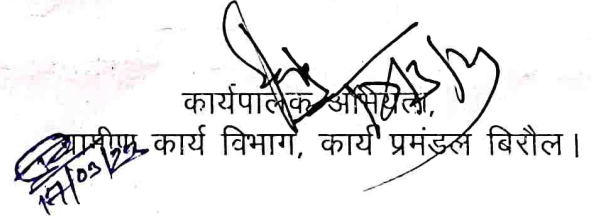 कार्यपालक अभियंता,
ग्रामीण कार्य विभाग, कार्य प्रमंडल बिरौल।
17/03/22